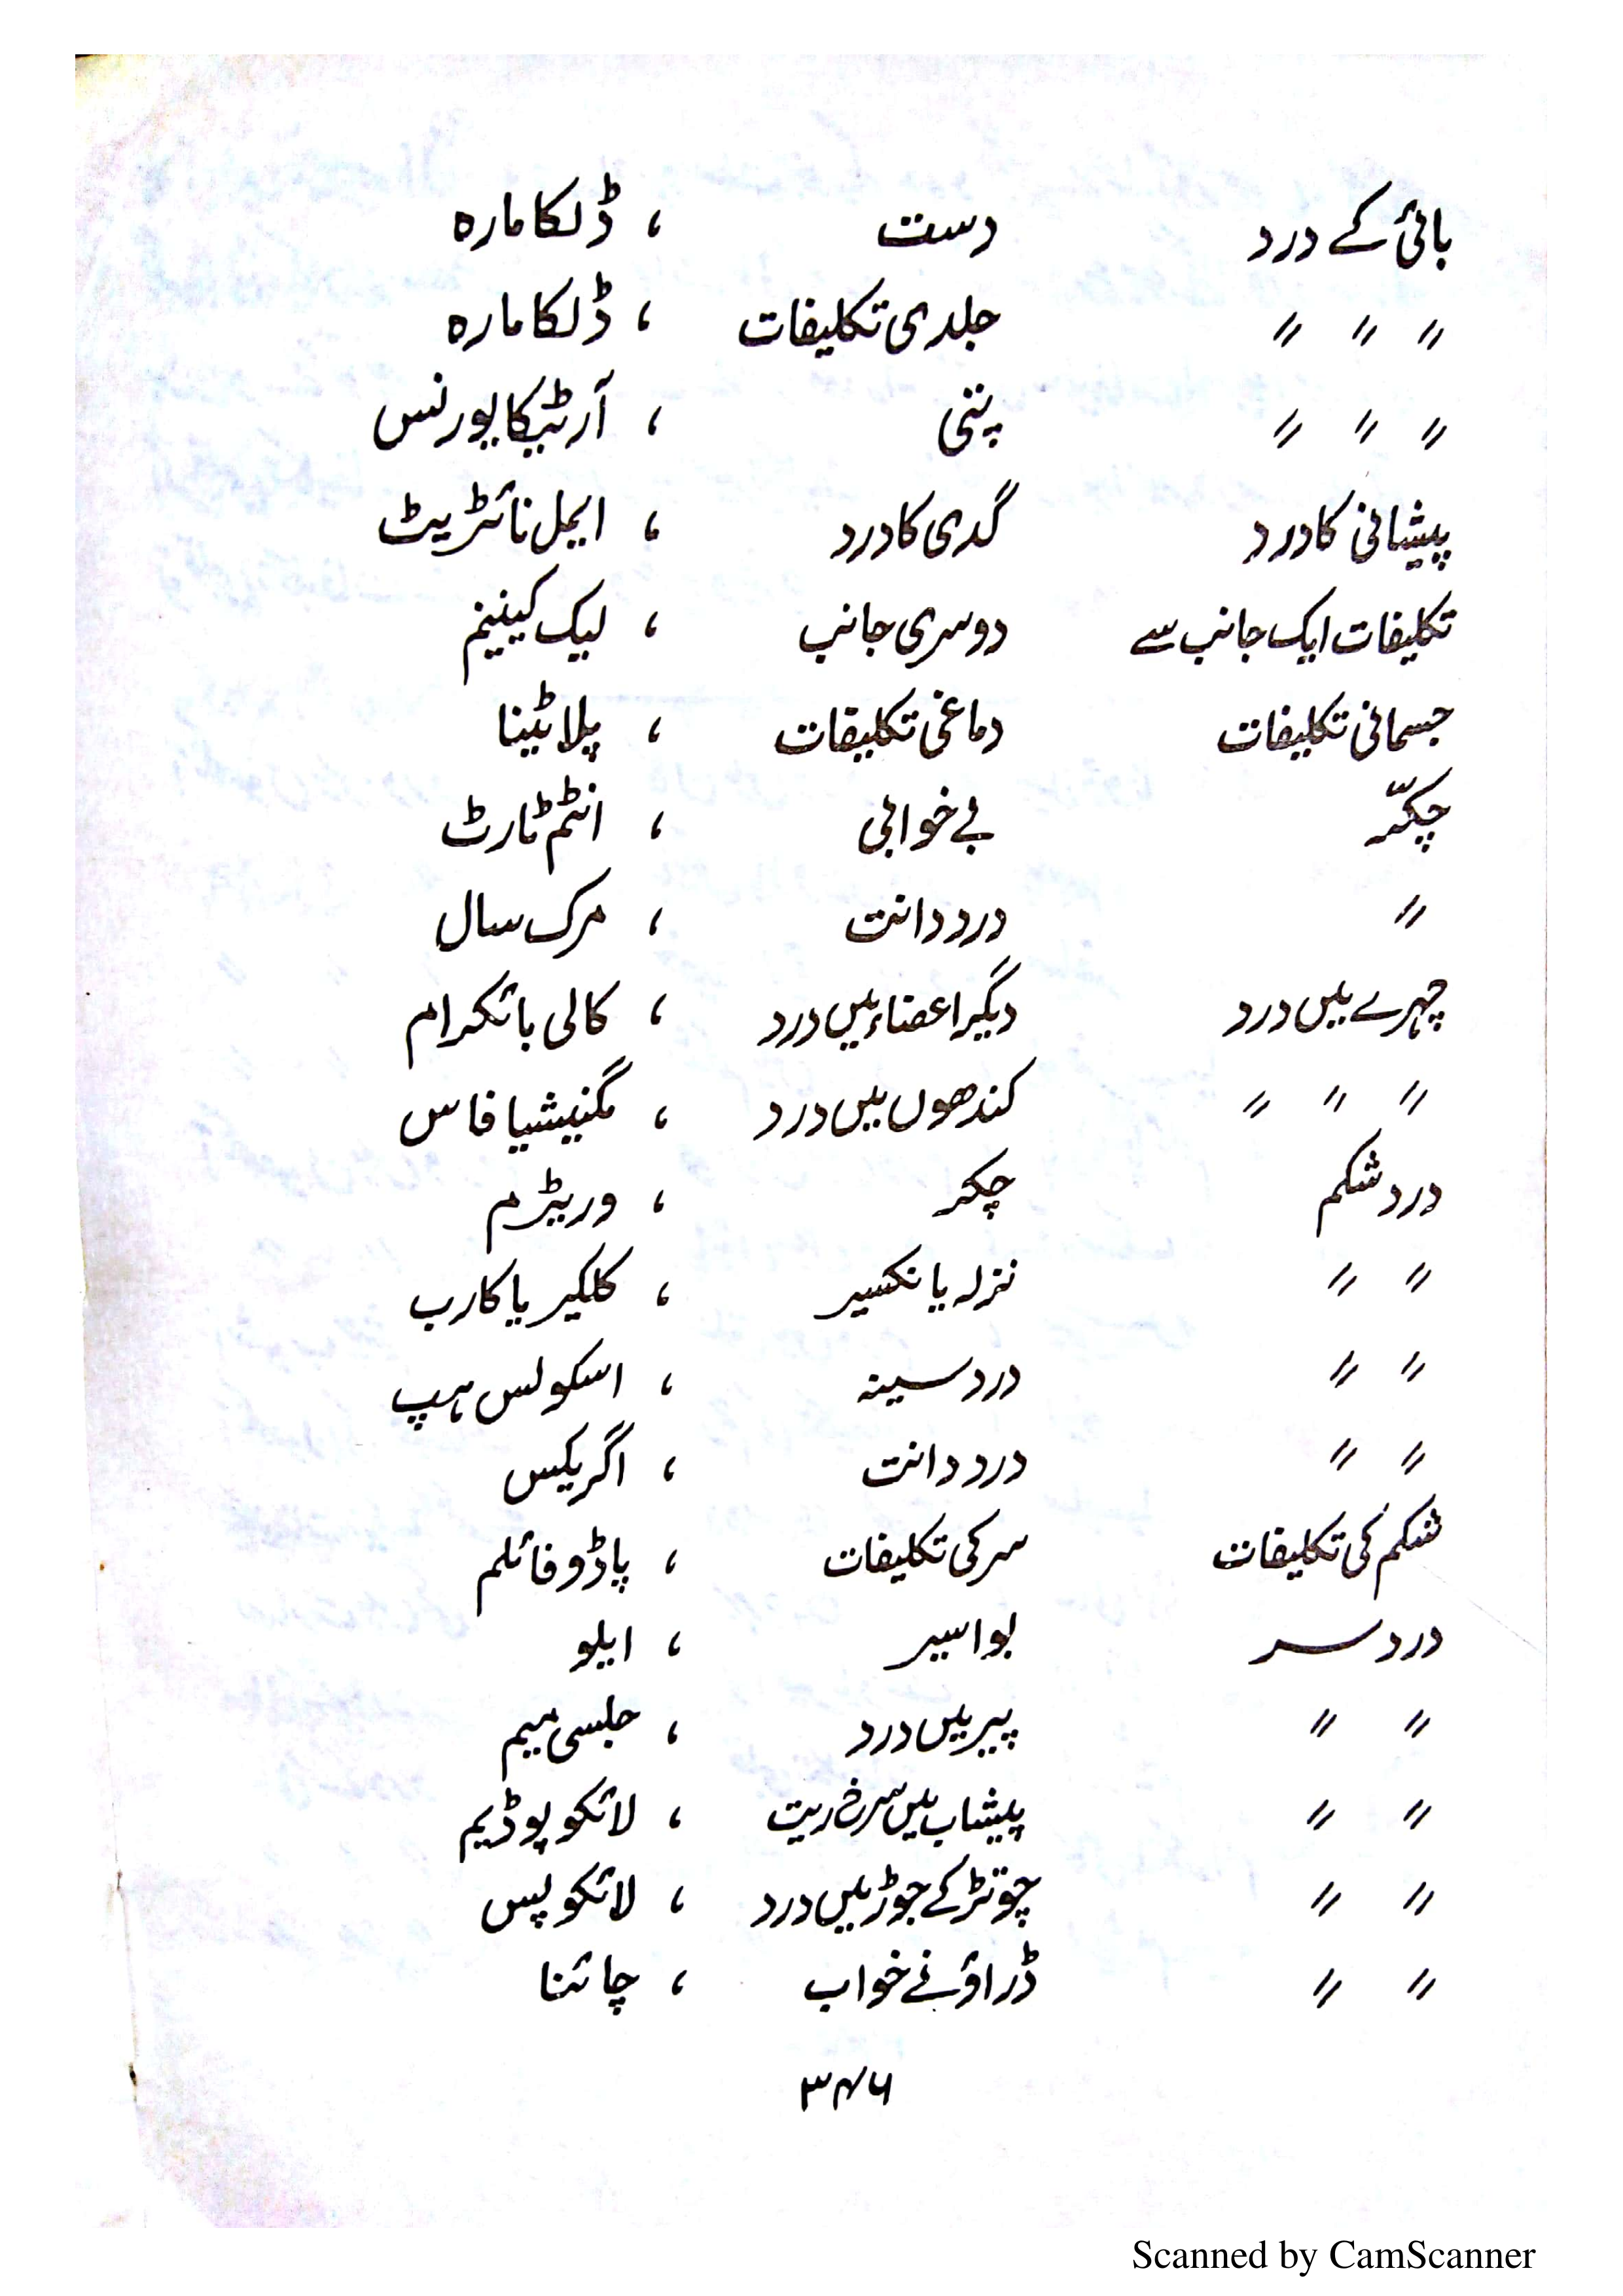 بائی کے درد دست ، ڈلکامارہ
〃 〃 〃 جلدی تکلیفات ، ڈلکامارہ
〃 〃 〃 پتی ، آرٹیکایورنس
پیشانی کا درد گدی کا درد ، ایمل نائٹریٹ
تکلیفات ایک جانب سے دوسری جانب ، لیک کینینم
جسمانی تکلیفات دماغی تکلیفات ، پلاٹینا
چکّر بے خوابی ، انٹم ٹارٹ
〃 درد دانت ، مرک سال
چہرے میں درد دیگر اعضاء میں درد ، کالی بائکرام
〃 〃 〃 کندھوں میں درد ، مگنیشیا فاس
درد شکم چکر ، وریٹرم
〃 〃 نزلہ یا نکسیر ، کلکیریا کارب
〃 〃 درد سینہ ، اسکولس ہپ
〃 〃 درد دانت ، اگریکس
شکم کی تکلیفات سر کی تکلیفات ، پاڈوفائلم
درد سر بواسیر ، ایلو
〃 〃 پیر میں درد ، جلسی میم
〃 〃 پیشاب میں سرخ ریت ، لائکوپوڈیم
〃 〃 چوتڑ کے جوڑ میں درد ، لائکوپس
〃 〃 ڈراؤنے خواب ، چائنا
۳۴۶
Scanned by CamScanner